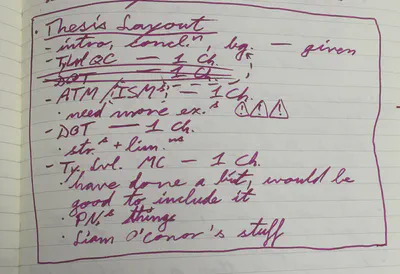 · Thesis Layout
- intro, concl.ⁿ, bg. — given
- QC — 1 Ch.
- DBT — 1 Ch.
- ATM/ISMˢ — 1 Ch.
· need more ex.ˢ ⚠⚠⚠
- DBT — 1 Ch.
· str.ˢ + lim.ⁿˢ
- Tx. Lvl. MC — 1 Ch.
· have done a bit, would be
good to include it
· PNˢ things
· Liam O'Conor's stuff